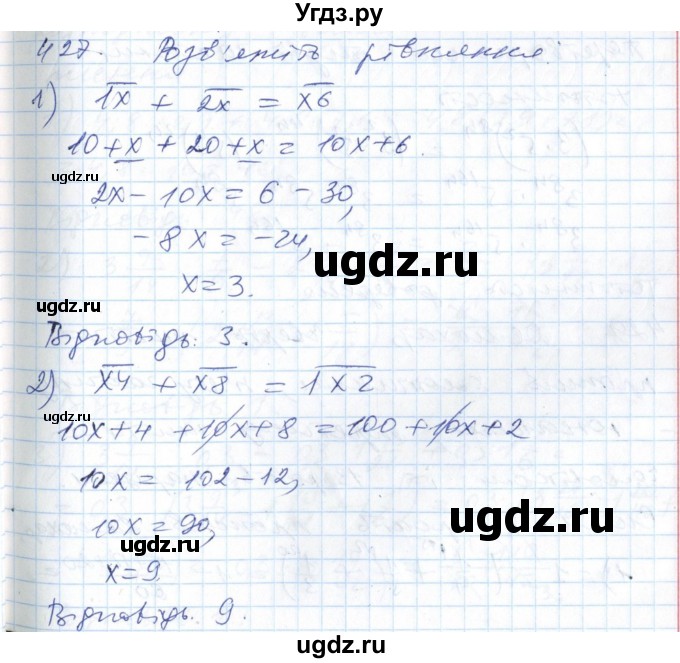 Угдз.ру
427. Розв'яжіть рівняння:
1) 1x + 2x = x6
10 + x + 20 + x = 10x + 6.
2x - 10x = 6 - 30,
- 8x = -24,
x = 3.
Відповідь: 3.
2) x4 + x8 = 1x2
10x + 4 + 10x + 8 = 100 + 10x + 2
10x = 102 - 12,
10x = 90,
x = 9
Відповідь. 9.
ugdz.ru
ugdz.ru
ugdz.ru
ugdz.ru
ugdz.ru
ugdz.ru
ugdz.ru
ugdz.ru